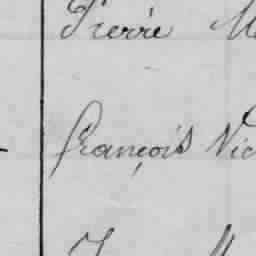 Pierre M
François Vic